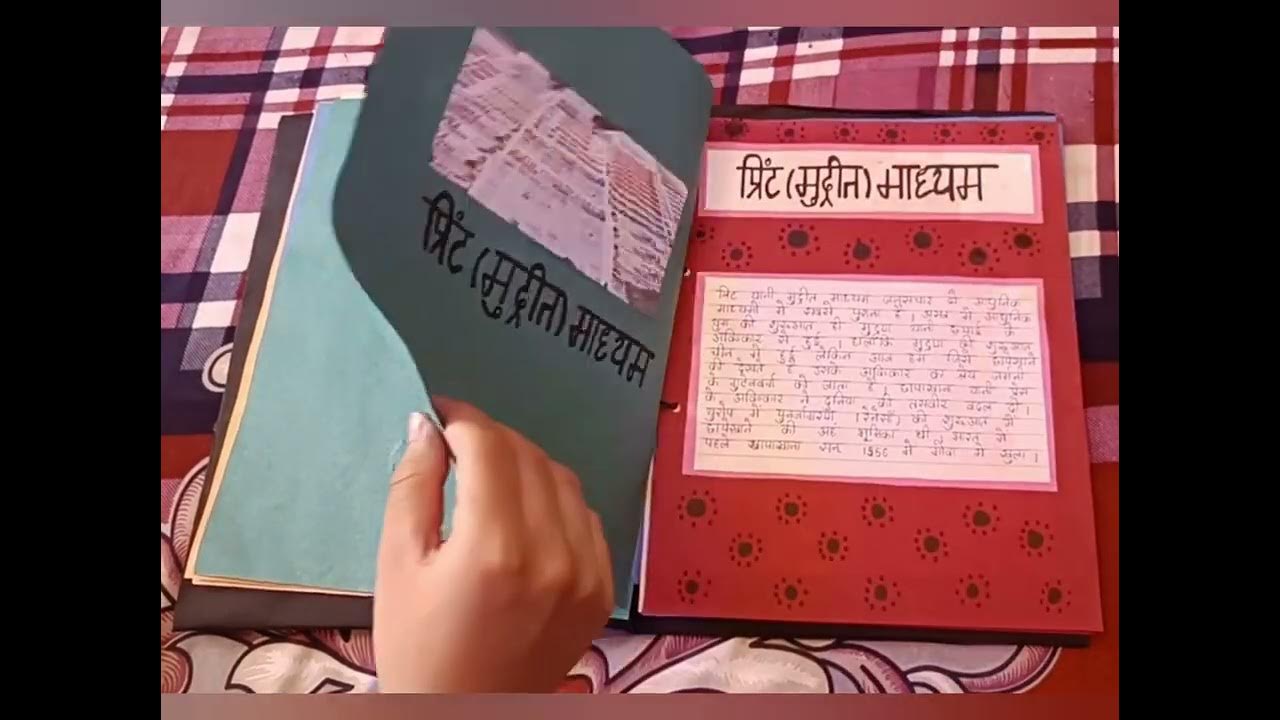 प्रिंट (मुद्रीत) माध्यम
प्रिंट (मुद्रीत) माध्यम
प्रिंट यानी मुद्रीत माध्यम जनसंचार के आधुनिक
माध्यमों में सबसे पुराना है। असल में आधुनिक
युग की शुरुआत ही मुद्रण यानी छपाई के
अविष्कार से हुई। हालांकि मुद्रण की शुरुआत
चीन से हुई लेकिन आज हम जिस छापेखाने
को देखते हैं उसके अविष्कार का श्रेय जर्मनी
के गुटेनबर्ग को जाता है। छापाखाना यानी प्रेस
के अविष्कार ने दुनिया की तसवीर बदल दी।
यूरोप में पुनर्जागरण (रेनेसाँ) की शुरुआत में
छापेखाने की अहं भूमिका थी, भारत में
पहले छापाखाना सन् 1556 में गोवा में खुला।